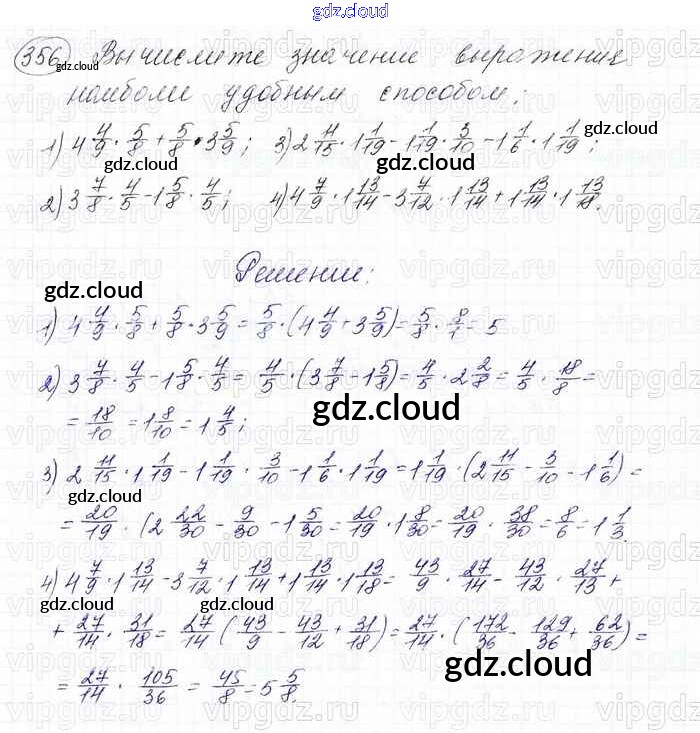 gdz.cloud
356 Вычислите значение выражения
наиболи удобным способом:
1) 4 4/9 · 5/8 + 5/8 · 3 5/9; 3) 2 11/15 · 1 1/19 - 1 1/19 · 3/10 - 1 1/6 · 1 1/19;
2) 3 7/8 · 4/5 - 1 5/8 · 4/5; 4) 4 7/9 · 1 13/14 - 3 7/12 · 1 13/14 + 1 13/14 · 1 13/18.
Решение:
1) 4 4/9 · 5/8 + 5/8 · 3 5/9 = 5/8 · (4 4/9 + 3 5/9) = 5/8 · 8/1 = 5
2) 3 7/8 · 4/5 - 1 5/8 · 4/5 = 4/5 · (3 7/8 - 1 5/8) = 4/5 · 2 2/8 = 4/5 · 18/8 =
= 18/10 = 1 8/10 = 1 4/5;
3) 2 11/15 · 1 1/19 - 1 1/19 · 3/10 - 1 1/6 · 1 1/19 = 1 1/19 · (2 11/15 - 3/10 - 1 1/6) =
= 20/19 · (2 22/30 - 9/30 - 1 5/30 = 20/19 · 1 8/30 = 20/19 · 38/30 = 8/6 = 1 1/3.
4) 4 7/9 · 1 13/14 - 3 7/12 · 1 13/14 + 1 13/14 · 1 13/18 = 43/9 · 27/14 - 43/12 · 27/13 +
+ 27/14 · 31/18 = 27/14 (43/9 - 43/12 + 31/18) = 27/14 · (172/36 - 129/36 + 62/36) =
= 27/14 · 105/36 = 45/8 = 5 5/8.